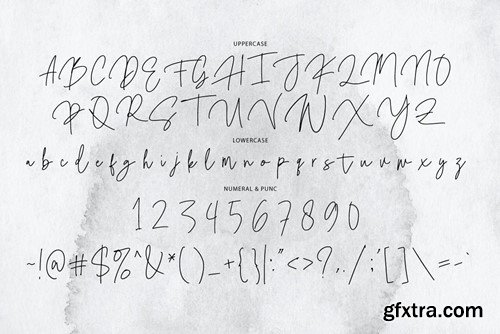 UPPERCASE
A B C D E F G H I J K L M N O
P Q R S T U V W X Y Z
LOWERCASE
a b c d e f g h i j k l m n o p q r s t u v w x y z
NUMERAL & PUNC
1 2 3 4 5 6 7 8 9 0
~!@#$%^&*()_+{}|:"<>?,./;'[]\=-`
gfxtra.com